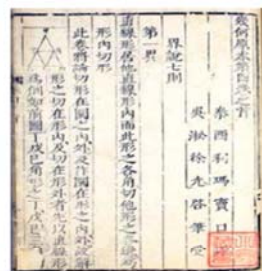 幾何原本第四卷之首
泰西利瑪竇口
吳淞徐光啓筆受
界說七則
第一界
直線形居他直線形內而此形之各角切他形之
形內切形
此卷將論切形在圜之內外及作圜在形之內外故解
形之切在形內及切在形外者先以直線形
為例如前圖丁戊己角形之丁戊己三